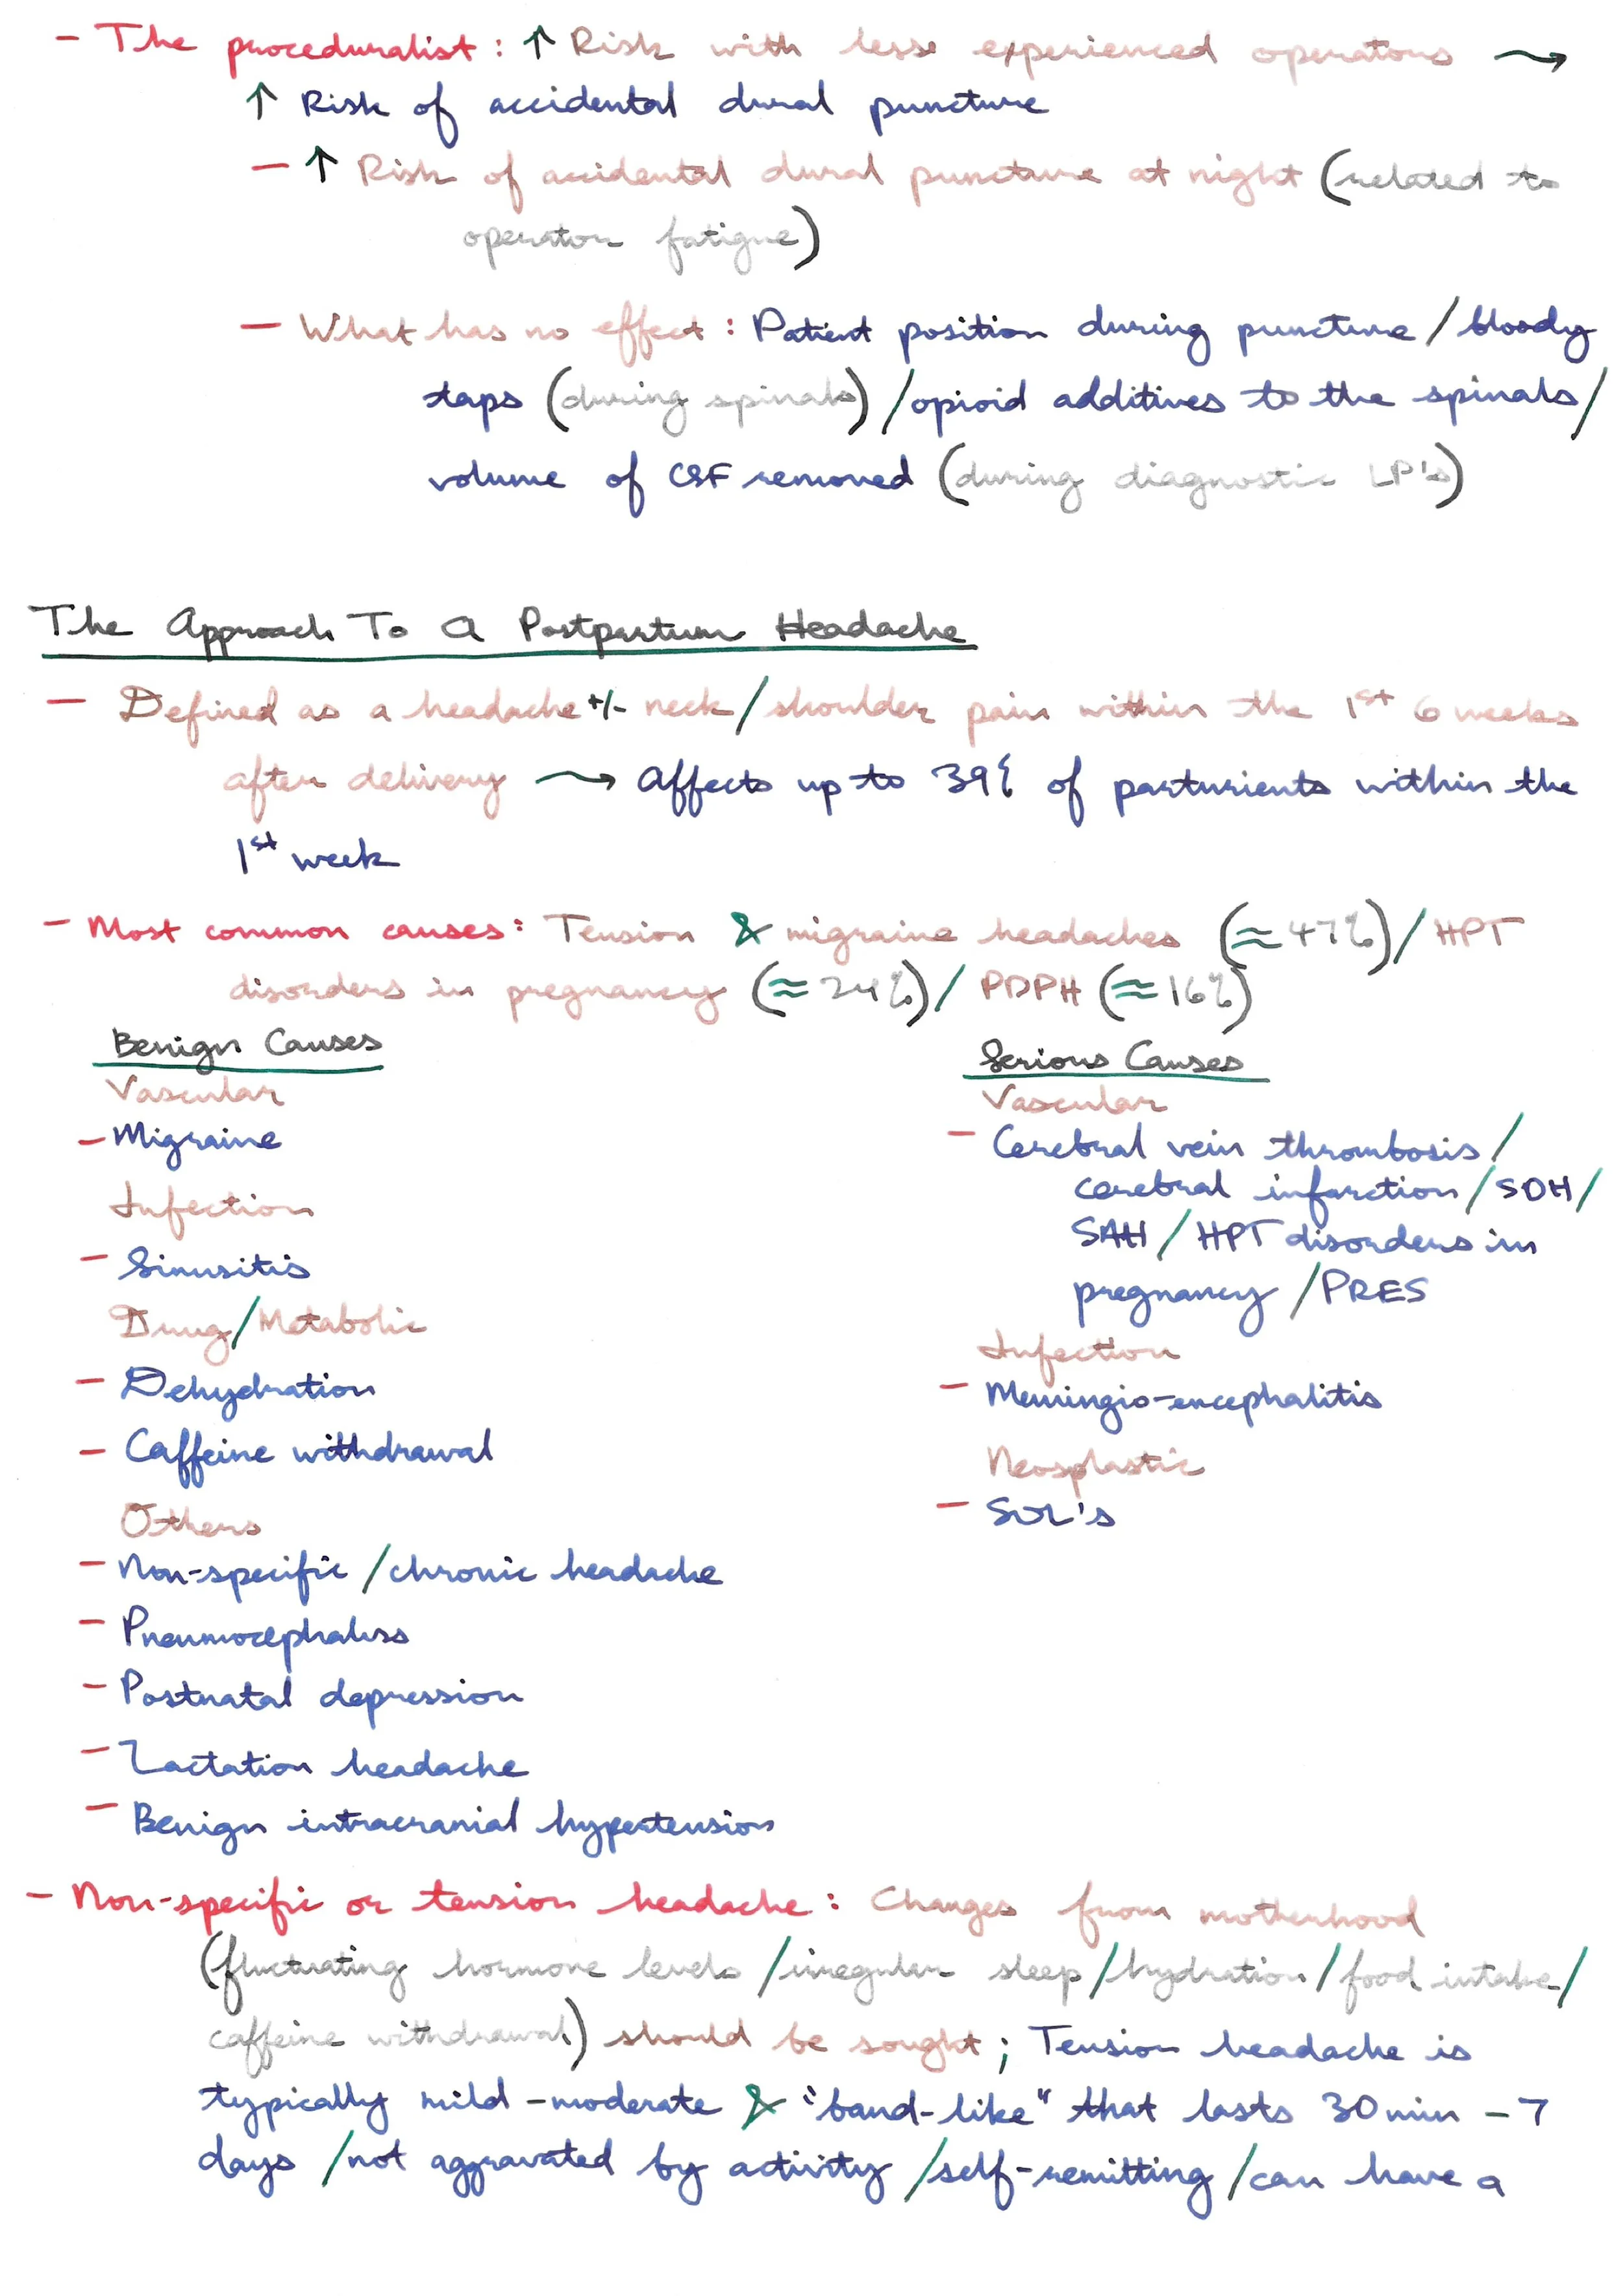 - The proceduralist: ↑ Risk with less experienced operators →
↑ Risk of accidental dural puncture
- ↑ Risk of accidental dural puncture at night (related to
operator fatigue)
- What has no effect: Patient position during puncture / bloody
taps (during spinals) / opioid additives to the spinals /
volume of CSF removed (during diagnostic LP's)
The Approach To A Postpartum Headache
- Defined as a headache +/- neck / shoulder pain within the 1st 6 weeks
after delivery → affects up to 39% of parturients within the
1st week
- Most common causes: Tension & migraine headaches (≈47%) / HPT
disorders in pregnancy (≈24%) / PDPH (≈16%)
Benign Causes
Vascular
- Migraine
Infection
- Sinusitis
Drug / Metabolic
- Dehydration
- Caffeine withdrawal
Others
- Non-specific / chronic headache
- Pneumocephalus
- Postnatal depression
- Lactation headache
- Benign intracranial hypertension
Serious Causes
Vascular
- Cerebral vein thrombosis /
cerebral infarction / SDH /
SAH / HPT disorders in
pregnancy / PRES
Infection
- Meningio-encephalitis
Neosplastic
- SOL's
- Non-specific or tension headache: Changes from motherhood
(fluctuating hormone levels / irregular sleep / hydration / food intake /
caffeine withdrawal) should be sought; Tension headache is
typically mild-moderate & "band-like" that lasts 30min - 7
days / not aggravated by activity / self-remitting / can have a